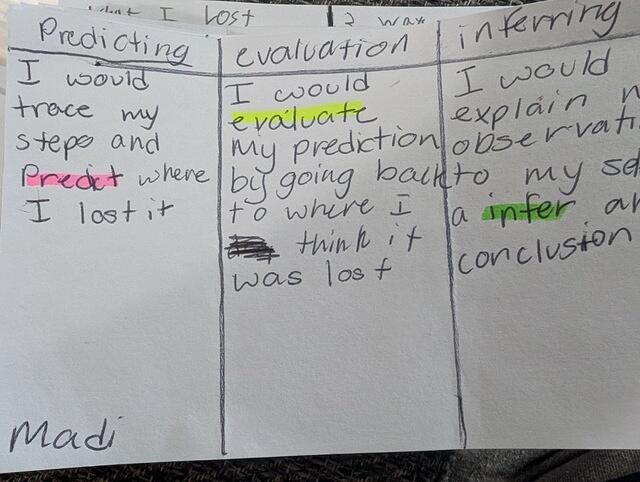 I lost
Predicting
I would
trace my
steps and
Predict where
I lost it
Madi
evaluation
I would
evaluate
my prediction
by going back
to where I
think it
was lost
inferring
I would
explain
observati
to my
a infer
conclusion